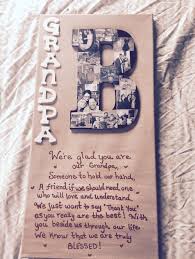 GRANDPA
B
We're glad you are
our Grandpa,
Someone to hold our hand,
A friend if we should need one
who will love and understand.
We just want to say "Thank You"
as you really are the best! With
you beside us through our life
We know that we are truly
BLESSED!